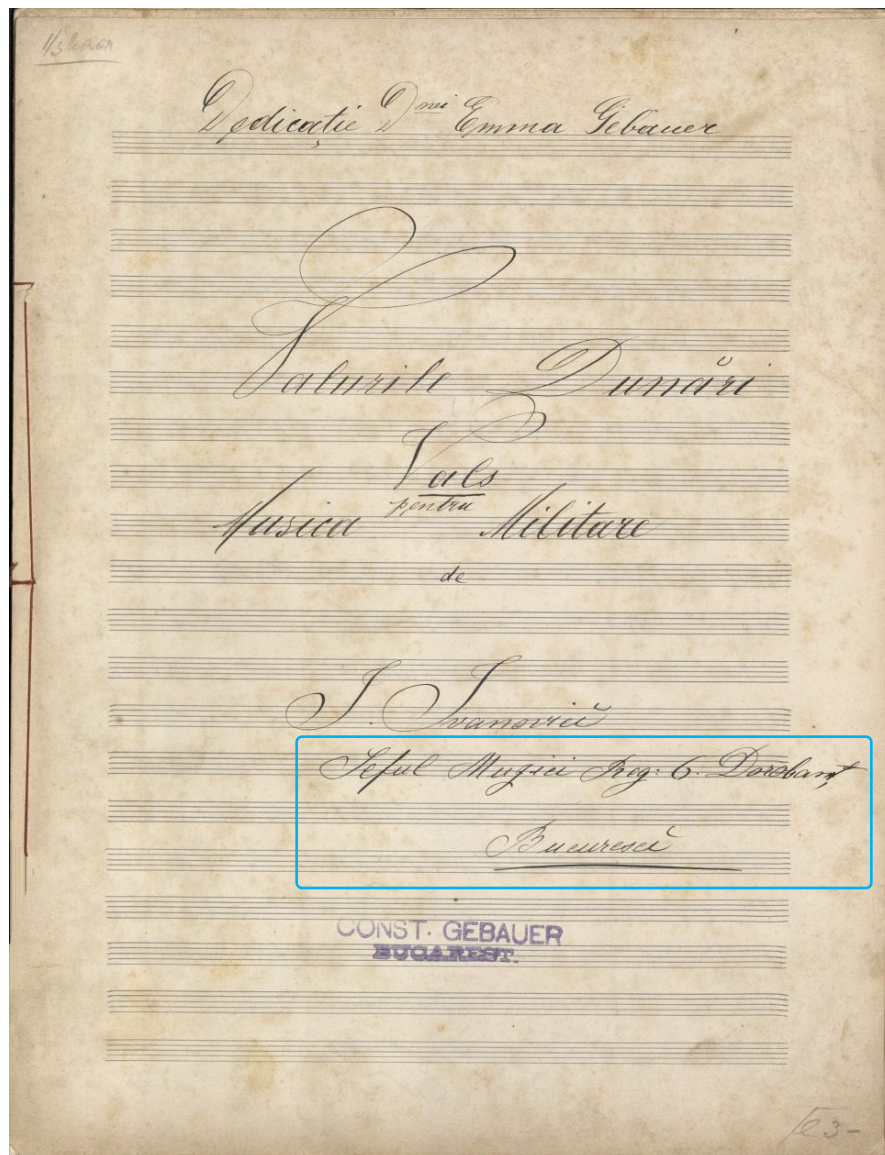 Dedicație Dnei Emma Gebauer
Valurile Dunări
Vals
pentru
Musica Militare
de
J. Ivanovici
Șeful Muzici Reg: 6. Dorobanț
Bucuresci
CONST. GEBAUER
BUCAREST.